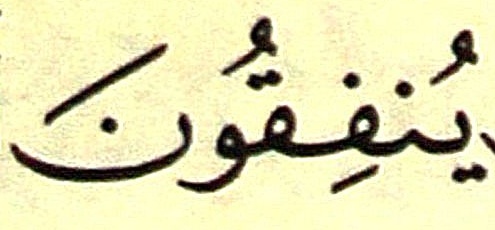 يُنفِقُونَ